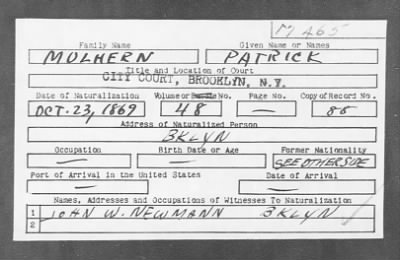 M 465
Family Name Given Name or Names
MULHERN PATRICK
Title and Location of Court
CITY COURT, BROOKLYN, N.Y.
Date of Naturalization Volume or Bundle No. Page No. Copy of Record No.
OCT. 23, 1869 48 — 85
Address of Naturalized Person
BKLYN
Occupation Birth Date or Age Former Nationality
— — SEE OTHER SIDE
Port of Arrival in the United States Date of Arrival
— —
Names, Addresses and Occupations of Witnesses To Naturalization
1 JOHN W. NEWMANN BKLYN
2